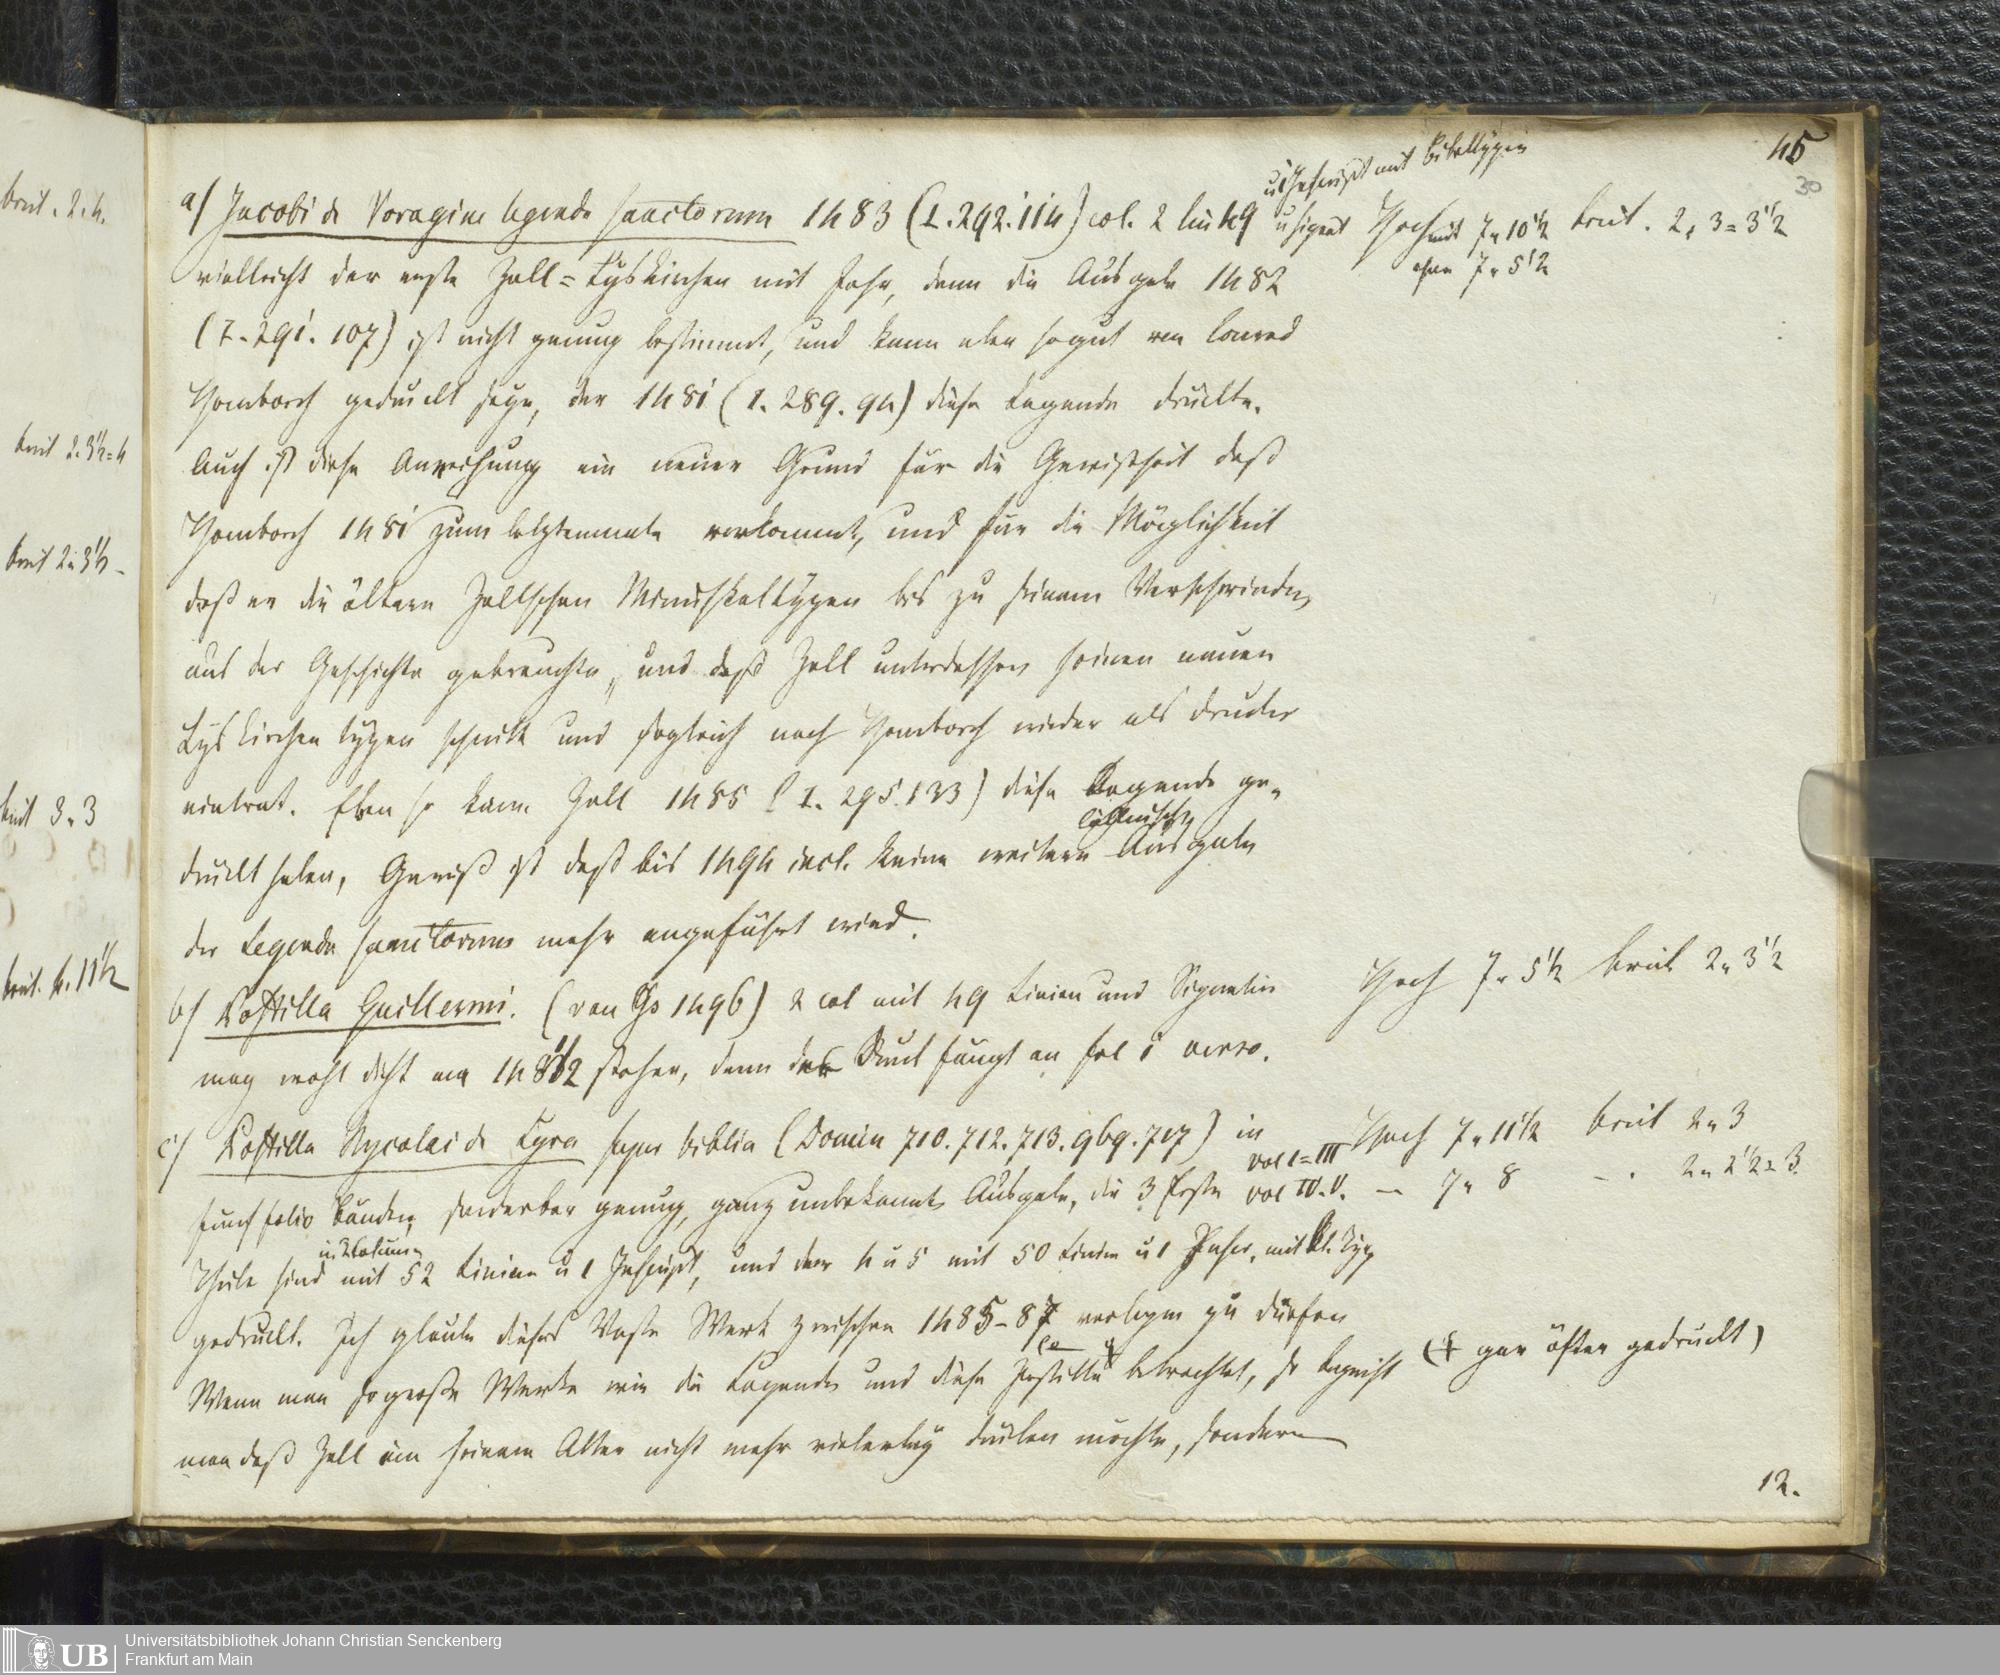 45
30
u 1 Inschrift mit Bibeltypen
a) Jacobi de Voragine legenda sanctorum 1483 (I. 292. 114) col. 2 lin 49 u signat Hoch mit 7„ 10 1/2 breit. 2„ 3 = 3 1/2
vielleicht der erste Zell = Lyskirchen mit Jahr, denn die Ausgabe 1482 ohne 7„ 5 1/2
(I. 291. 107) ist nicht genung bestimmt, und kann eben sogut von Conrad
Homborch gedruckt seyn, der 1481 (I. 289. 94) diese Legende druckte.
Auch ist diese ein neuer Grund für die Gewißheit daß
Homborch 1481 zum letztenmale vorkommt, und für die Möglichkeit
daß er die ältern Zellschen Minuskeltypen bis zu seinem Verschwinden
aus der Geschichte gebrauchte, und daß Zell unterdessen seinen neuen
Lyskirchen typen schnitt und sogleich nach Homborch wieder als Drucker
eintrat. Eben so kann Zell 1485 (I. 295. 133) diese Legende ge„
cöllnische
druckt haben, Gewiß ist daß bis 1494 incl. keine weitere Ausgabe
der Legenda sanctorum mehr angeführt wird.
b) Postilla Guillermi. (von 1496) 2 col mit 49 Linien und Signatur Hoch 7„ 5 1/2 breit 2„ 3 1/2
mag wohl dicht an 1482 stehen, denn der Druck fängt an fol 1 verso.
c) Postilla Nycolai de Lyra super biblia (Domin 710. 712. 713. 969. 717) in Hoch 7„ 11 1/2 breit 2„ 3
vol I = III
fünf folio bänden, sonderbar genung, ganz unbekannte Ausgabe, die 3 Erste vol IV. V. — 7„ 8 — . 2„ 2 1/2 = 3.
in 2 Colum
Theile sind mit 52 Linien u 1 Inschrift, und der 4 u 5 mit 50 Linien u 1 Insch. mit Kl. Typ
gedruckt. Ich glaube dieses Vaste Werk zwischen 1485-87 verlegen zu dürfen
Wenn man so große Werke wie die Legende und diese Postille betrachtet, so begreift ( gar öfter gedruckt)
man daß Zell in seinem Alter nicht mehr vielerley drucken mochte, sondern
12.
breit. 2. 4.
breit 2. 3 1/2 = 4
breit 2„ 3 1/2 -
breit 3„ 3
breit. 4. 11 1/2
Universitätsbibliothek Johann Christian Senckenberg
Frankfurt am Main
UB